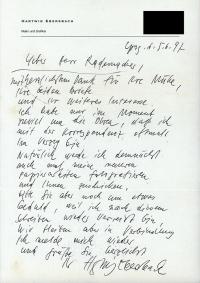 HARTWIG EBERSBACH
Maler und Grafiker
Lpzg. d. 5.6.97
Lieber Herr Rademacher,
Dank für Ihre Mühe,
Ihre beiden Briefe
und Ihr weiteres Interesse
Ich habe nur im Moment
zuviel um die Ohren, daß ich
mit der Korrespondenz oftmals
im Verzug bin.
Natürlich werde ich demnächst
auch mal meine neueren
fotografieren
und Ihnen zuschicken.
Bitte Sie aber noch um etwas
Geduld, weil ich nach diesem
Schreiben wieder verreist bin.
Wir bleiben aber in Verbindung
Ich melde mich wieder
und grüße Sie herzlichst
Ihr Hartwig Ebersbach